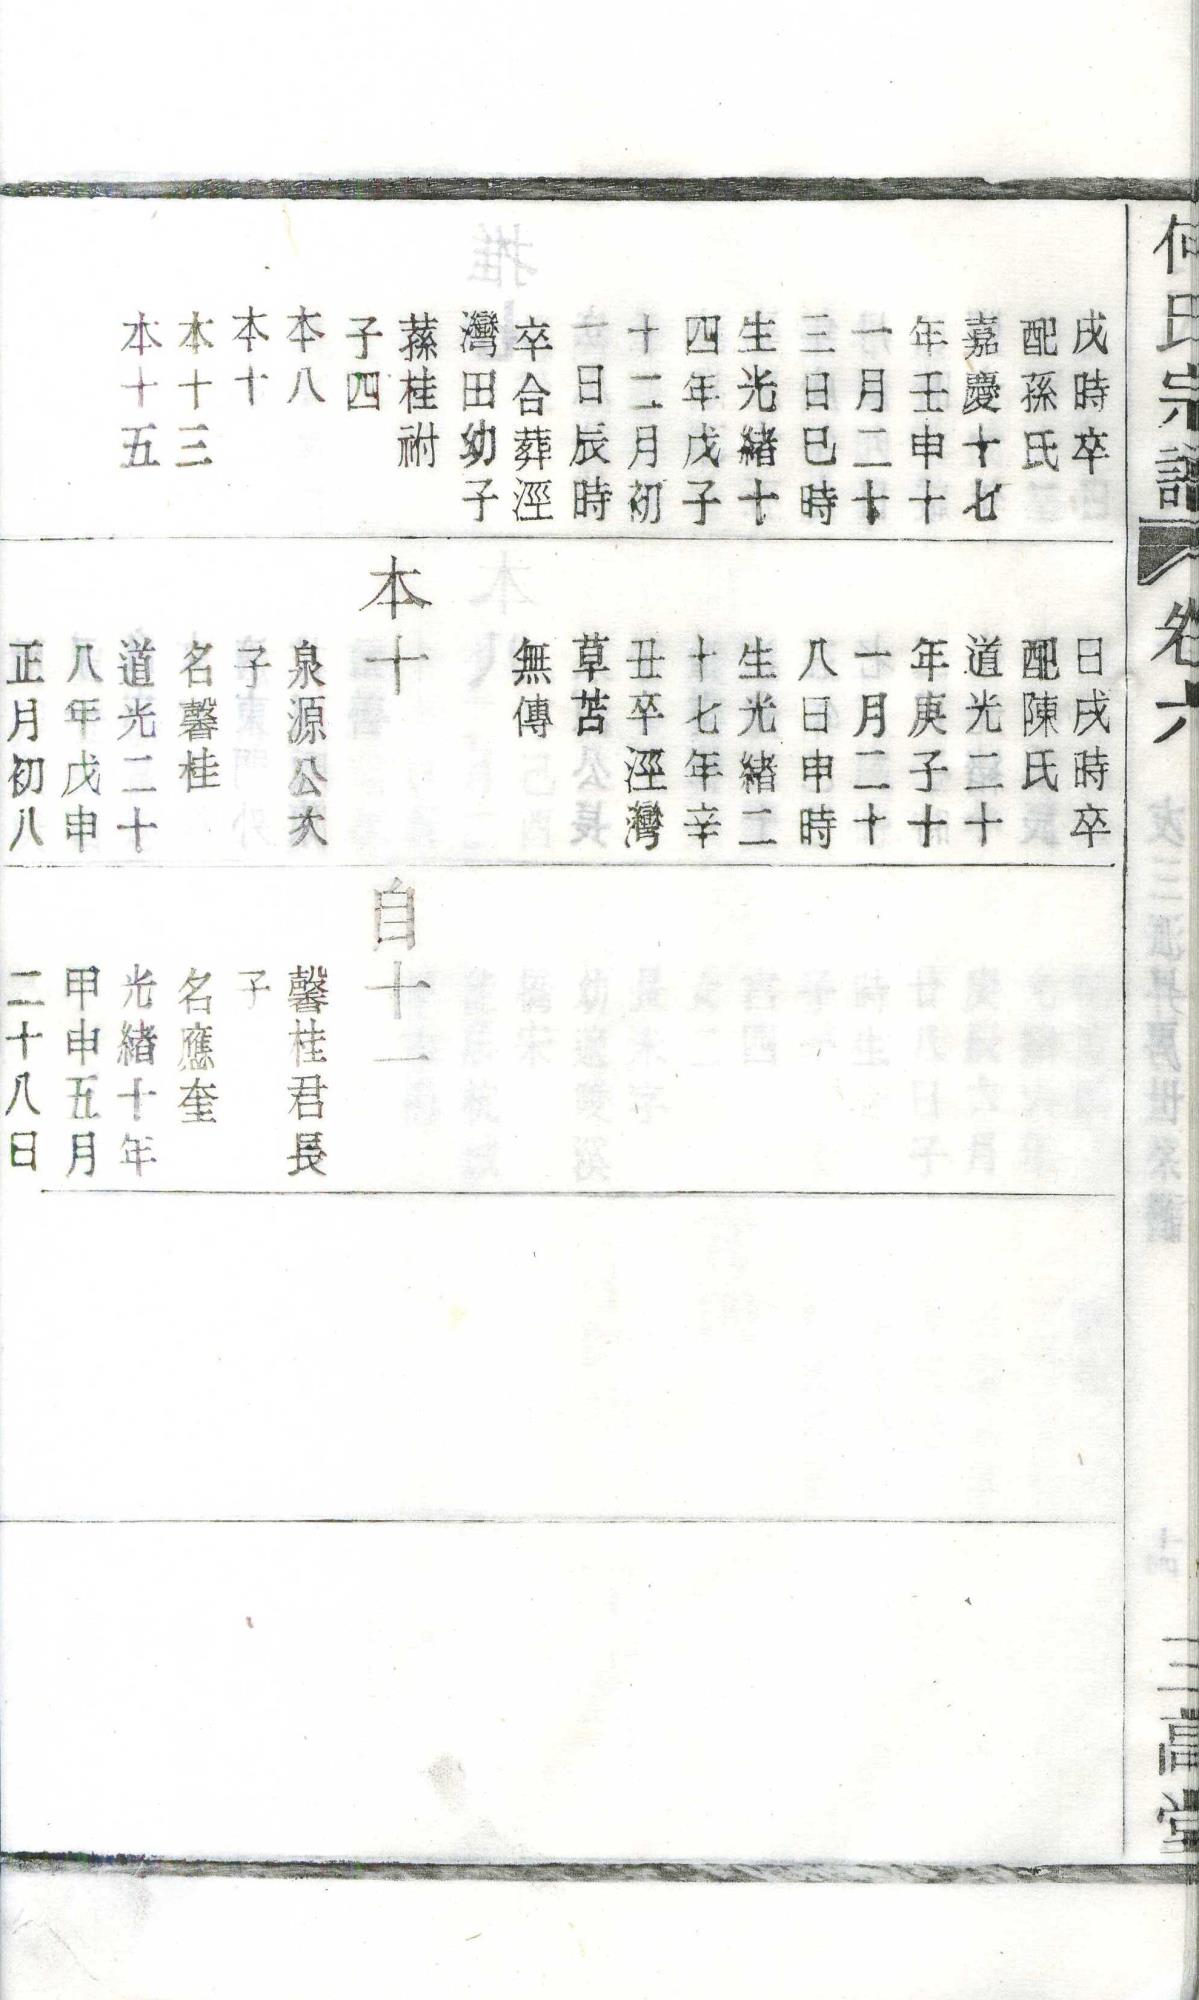 何氏宗譜
卷六
三高堂
戌時卒
配孫氏
嘉慶十七
年壬申十
一月二十
三日巳時
生光緒十
四年戊子
十二月初
一日辰時
卒合葬涇
灣田幼子
蓀桂祔
子四
本八
本十
本十三
本十五
日戌時卒
配陳氏
道光二十
年庚子十
一月二十
八日申時
生光緒二
十七年辛
丑卒涇灣
草苫
無傳
本十
泉源公次
子
名馨桂
道光二十
八年戊申
正月初八
自十一
馨桂君長
子
名應奎
光緒十年
甲申五月
二十八日